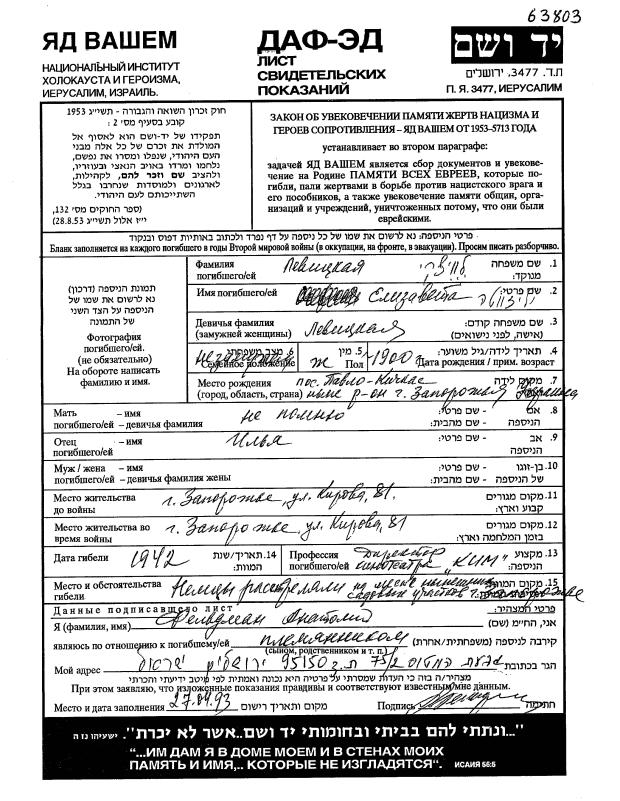 63803
ЯД ВАШЕМ
НАЦИОНАЛЬНЫЙ ИНСТИТУТ
ХОЛОКАУСТА И ГЕРОИЗМА,
ИЕРУСАЛИМ, ИЗРАИЛЬ.
ДАФ-ЭД
ЛИСТ
СВИДЕТЕЛЬСКИХ
ПОКАЗАНИЙ
יד ושם
ת.ד. 3477, ירושלים
П. Я. 3477, ИЕРУСАЛИМ
חוק זכרון השואה והגבורה - תשי״ג 1953
קובע בסעיף מס׳ 2 :
תפקידו של יד-ושם הוא לאסוף אל
המולדת את זכרם של כל אלה מבני
העם היהודי, שנפלו ומסרו את נפשם,
נלחמו ומרדו באויב הנאצי ובעוזריו,
ולהציב שם וזכר להם, לקהילות,
לארגונים ולמוסדות שנחרבו בגלל
השתייכותם לעם היהודי.
(ספר החוקים מס׳ 132,
י״ז אלול תשי״ג 28.8.53)
ЗАКОН ОБ УВЕКОВЕЧЕНИИ ПАМЯТИ ЖЕРТВ НАЦИЗМА И
ГЕРОЕВ СОПРОТИВЛЕНИЯ – ЯД ВАШЕМ ОТ 1953–5713 ГОДА
устанавливает во втором параграфе:
задачей ЯД ВАШЕМ является сбор документов и увекове-
чение на Родине ПАМЯТИ ВСЕХ ЕВРЕЕВ, которые по-
гибли, пали жертвами в борьбе против нацистского врага и
его пособников, а также увековечение памяти общин, орга-
низаций и учреждений, уничтоженных потому, что они были
еврейскими.
פרטי הניספה: נא לרשום את שמו של כל ניספה על דף נפרד ולכתוב באותיות דפוס ובנקוד
Бланк заполняется на каждого погибшего в годы Второй мировой войны (в оккупации, на фронте, в эвакуации). Просим писать разборчиво.
תמונת הניספה (דרכון)
נא לרשום את שמו של
הניספה על הצד השני
של התמונה
Фотография
погибшего/ей.
(не обязательно)
На обороте написать
фамилию и имя.
Фамилия
погибшего/ей Левицкая
1. שם משפחה
מנוקד:
Имя погибшего/ей Елизавета
2. שם פרטי:
Девичья фамилия
(замужней женщины) Левицкая
3. שם משפחה קודם:
(אישה, לפני נישואים)
6. מצב משפחתי
Семейное положение
5. מין
Пол ж
~1900
4. תאריך לידה/גיל משוער:
Дата рождения / прим. возраст
Место рождения
(город, область, страна) пос. Павло-Кичкас
ныне р-он г. Запорожья Украина
7. מקום לידה
Мать – имя
погибшего/ей – девичья фамилия не помню
8. אם - שם פרטי:
הניספה - שם מהבית:
Отец – имя
погибшего/ей Илья
9. אב - שם פרטי:
הניספה
Муж / жена – имя
погибшего/ей – девичья фамилия жены
10. בן-זוגו - שם פרטי:
של הניספה - שם מהבית:
Место жительства
до войны г. Запорожье, ул. Кирова, 81.
11. מקום מגורים
קבוע וארץ:
Место жительства во
время войны г. Запорожье, ул. Кирова, 81
12. מקום מגורים
בזמן המלחמה וארץ:
Дата гибели 1942
14. תאריך/שנת
המוות:
Профессия
погибшего/ей директор
кинотеатра "КИМ"
13. מקצוע
הניספה:
Место и обстоятельства
гибели Немцы расстреляли на месте нынешних
садовых участков г. Запорожье
15. מקום המוות
Данные подписавшего лист
פרטי המצהיר:
Я (фамилия, имя) Фельдман Анатолий
אני, החי״מ (שם)
являюсь по отношению к погибшему/ей племянником
(сыном, родственником и т. п.)
קירבה לניספה (משפחתית/אחרת)
Мой адрес גבעת המטוס 75/2 ת.ד 95150 ירושלים ישראל
הגר בכתובת
מצהיר/ה בזה כי העדות שמסרתי על פרטיה היא נכונה ואמתית לפי מיטב ידיעתי והכרתי
При этом заявляю, что изложенные показания правдивы и соответствуют известным мне данным.
Место и дата заполнения 27.04.93 מקום ותאריך רישום
Подпись חתימה
"...ונתתי להם בביתי ובחומותי יד ושם...אשר לא יכרת". ישעיהו נו ה
"...ИМ ДАМ Я В ДОМЕ МОЕМ И В СТЕНАХ МОИХ
ПАМЯТЬ И ИМЯ,.. КОТОРЫЕ НЕ ИЗГЛАДЯТСЯ". ИСАИЯ 56:5